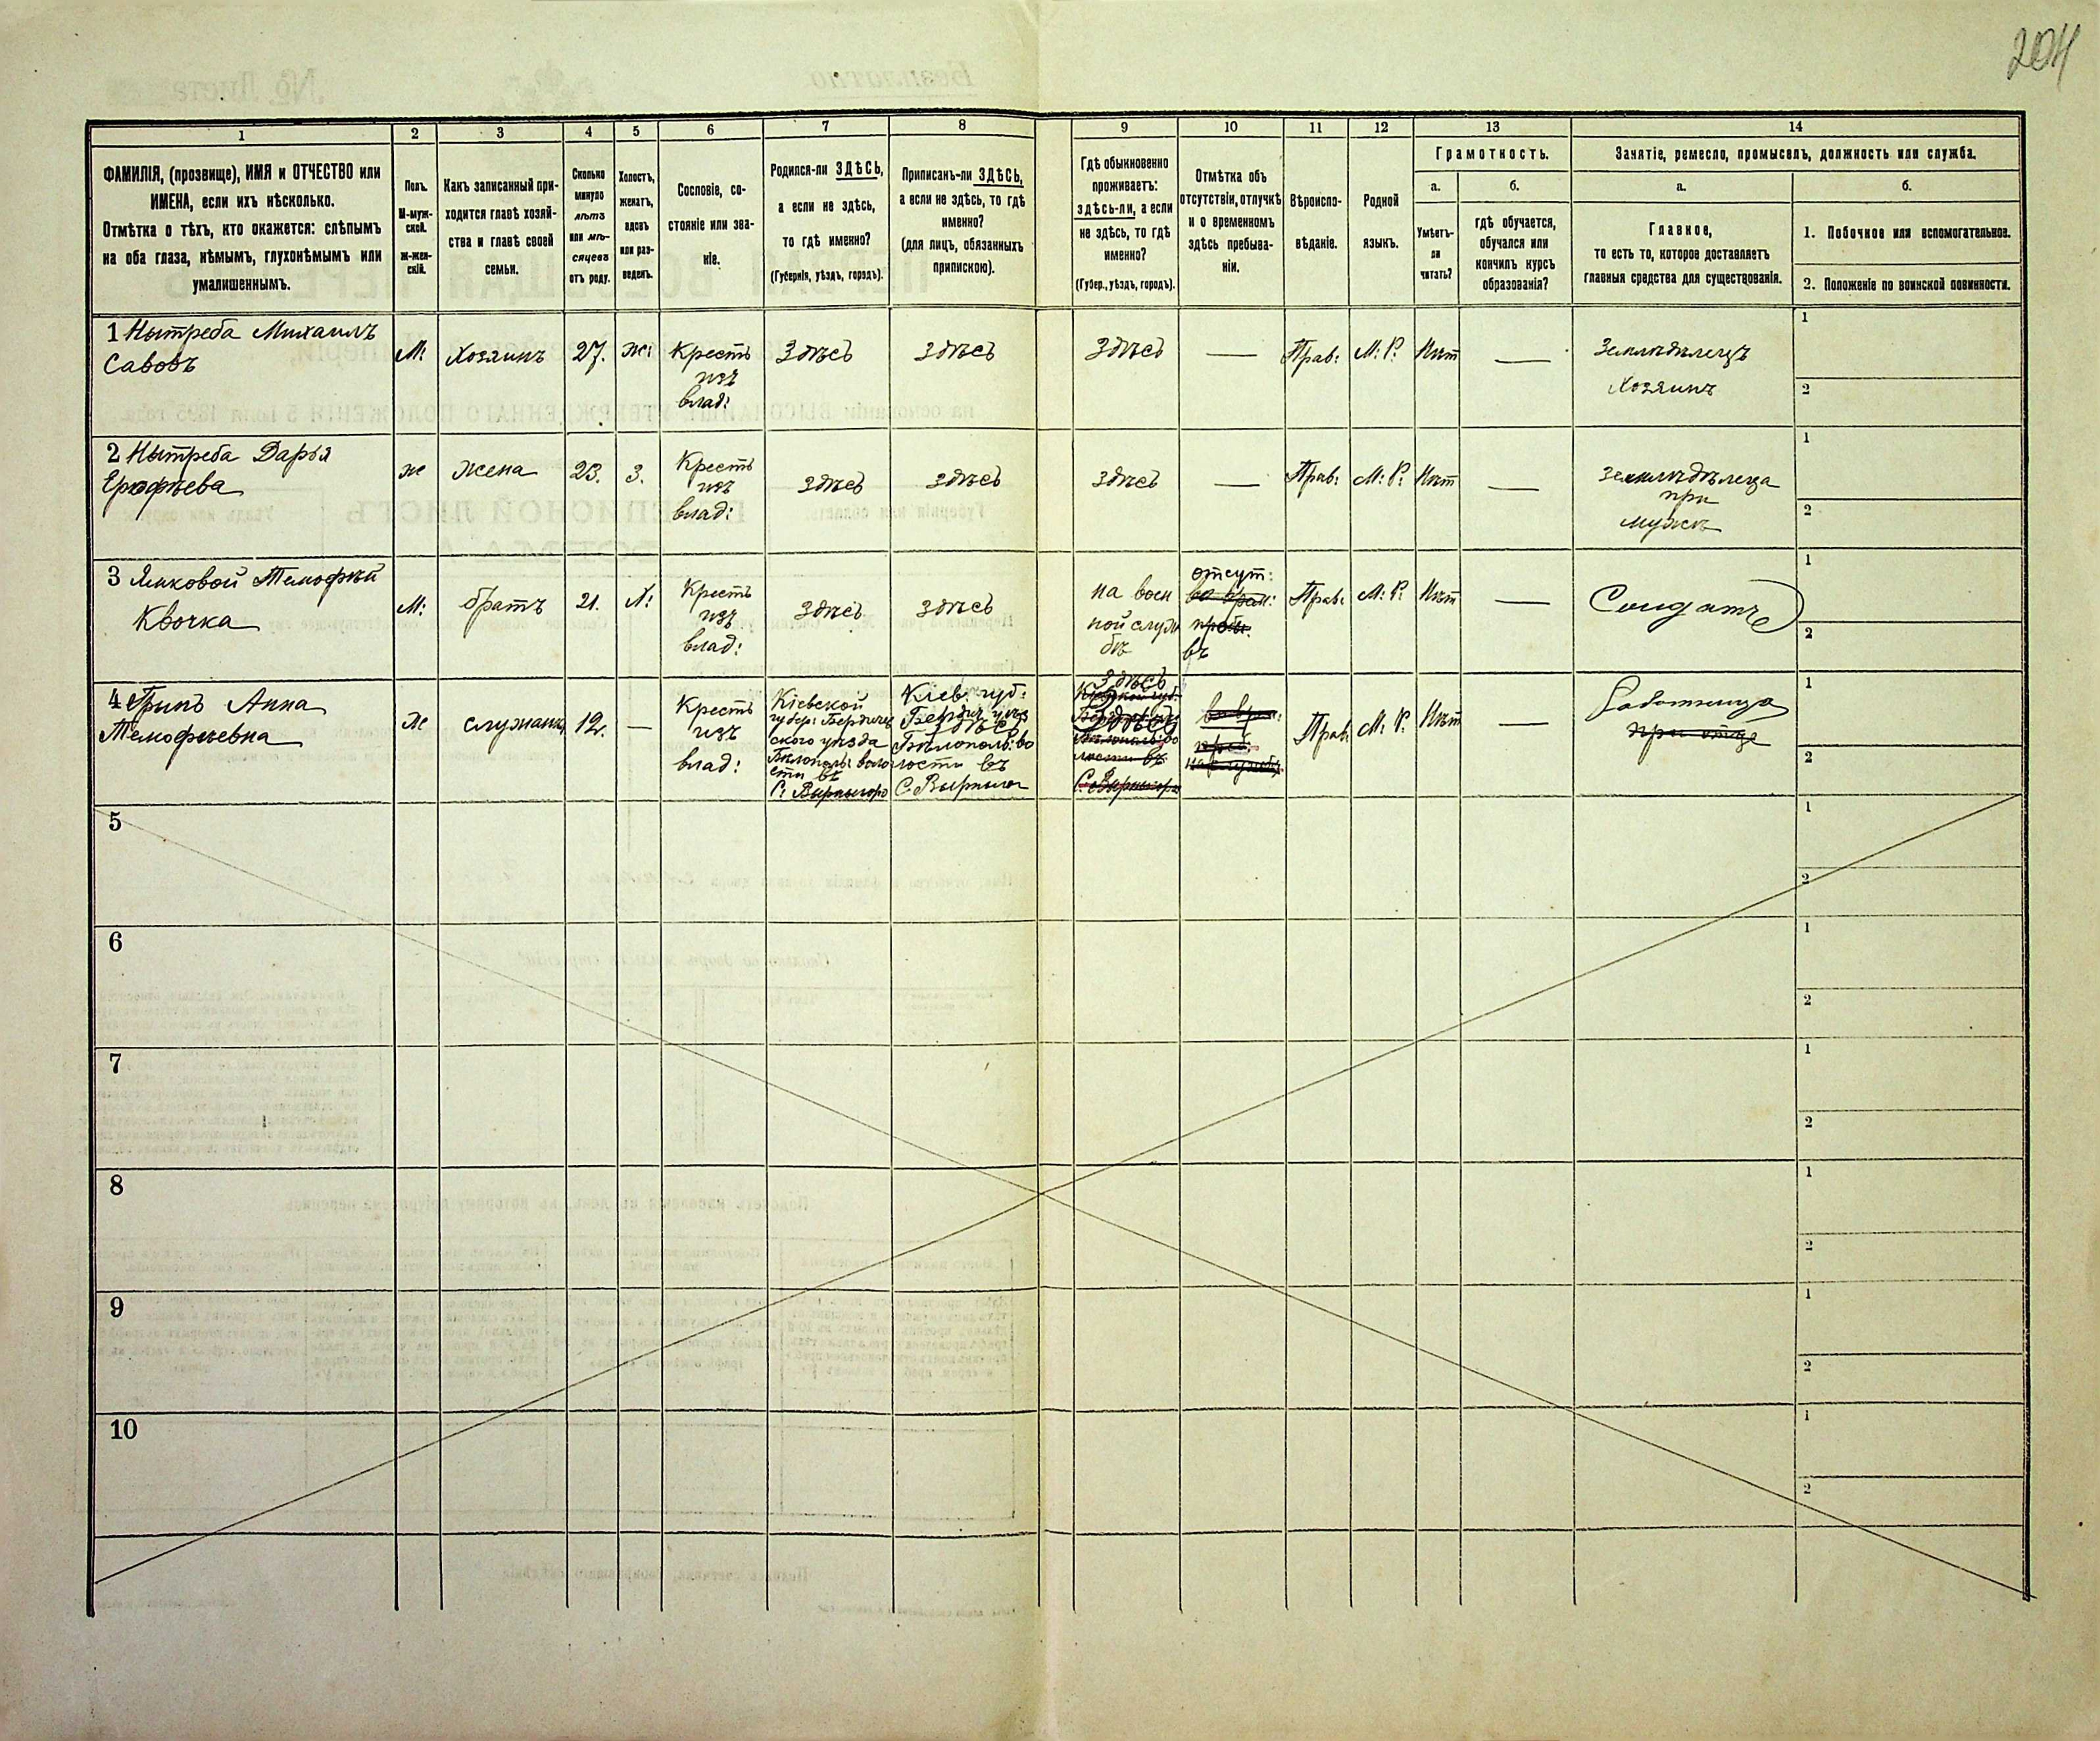 204
1 2 3 4 5 6 7 8 9 10 11 12 13 14
ФАМИЛІЯ, (прозвище), ИМЯ и ОТЧЕСТВО или
ИМЕНА, если ихъ нѣсколько.
Отмѣтка о тѣхъ, кто окажется: слѣпымъ
на оба глаза, нѣмымъ, глухонѣмымъ или
умалишеннымъ.
Полъ.
М-муж-
ской.
Ж-жен-
скій.
Какъ записанный при-
ходится главѣ хозяй-
ства и главѣ своей
семьи.
Сколько
минуло
лѣтъ
или мѣ-
сяцевъ
отъ роду.
Холостъ,
женатъ,
вдовъ
или раз-
веденъ.
Сословіе, со-
стояніе или зва-
ніе.
Родился-ли ЗДѢСЬ,
а если не здѣсь,
то гдѣ именно?
(Губернія, уѣздъ, городъ).
Приписанъ-ли ЗДѢСЬ,
а если не здѣсь, то гдѣ
именно?
(для лицъ, обязанныхъ
припискою).
Гдѣ обыкновенно
проживаетъ:
здѣсь-ли, а если
не здѣсь, то гдѣ
именно?
(Губер., уѣздъ, городъ).
Отмѣтка объ
отсутствіи, отлучкѣ
и о временномъ
здѣсь пребыва-
ніи.
Вѣроиспо-
вѣданіе.
Родной
языкъ.
Грамотность.
а.
Умѣетъ-
ли
читать?
б.
гдѣ обучается,
обучался или
кончилъ курсъ
образованія?
Занятіе, ремесло, промыселъ, должность или служба.
а.
Главное,
то есть то, которое доставляетъ
главныя средства для существованія.
б.
1. Побочное или вспомогательное.
2. Положеніе по воинской повинности.
1 Нытреба Михаилъ
Савовъ
М:
Хозяинъ
27.
ж:
Кресть
изъ
влад:
Здѣсь
Здѣсь
Здѣсь
—
Прав:
М: Р.
Нѣт
—
Земледѣлецъ
Хозяинъ
1
2
2 Нытреба Дарья
Ерофѣева
ж
жена
23.
З.
Кресть
изъ
влад:
здѣсь
здѣсь
здѣсь
—
Прав:
М: Р:
Нѣт
—
при
мужѣ
1
2
3 Тимофѣй
Квочка
М:
братъ
21.
Х:
Кресть
изъ
влад:
здѣсь
здѣсь
на воен
ной служ
бѣ
отсут:
Прав:
М: Р:
Нѣт
—
Солдатъ
1
2
4 Анна
Тимофѣевна
Ж
служанка
12.
—
Кресть
изъ
влад:
Кіевской
губер: Бердичев
ского уѣзда
Бѣлополь: воло
сти въ
С.
Кіев. губ:
Бердич уѣз
Бѣлополь: во
лости въ
С.
Здѣсь
Прав:
М: Р.
Нѣт
—
Работница
при отцѣ
1
2
5
1
2
6
1
2
7
1
2
8
1
2
9
1
2
10
1
2